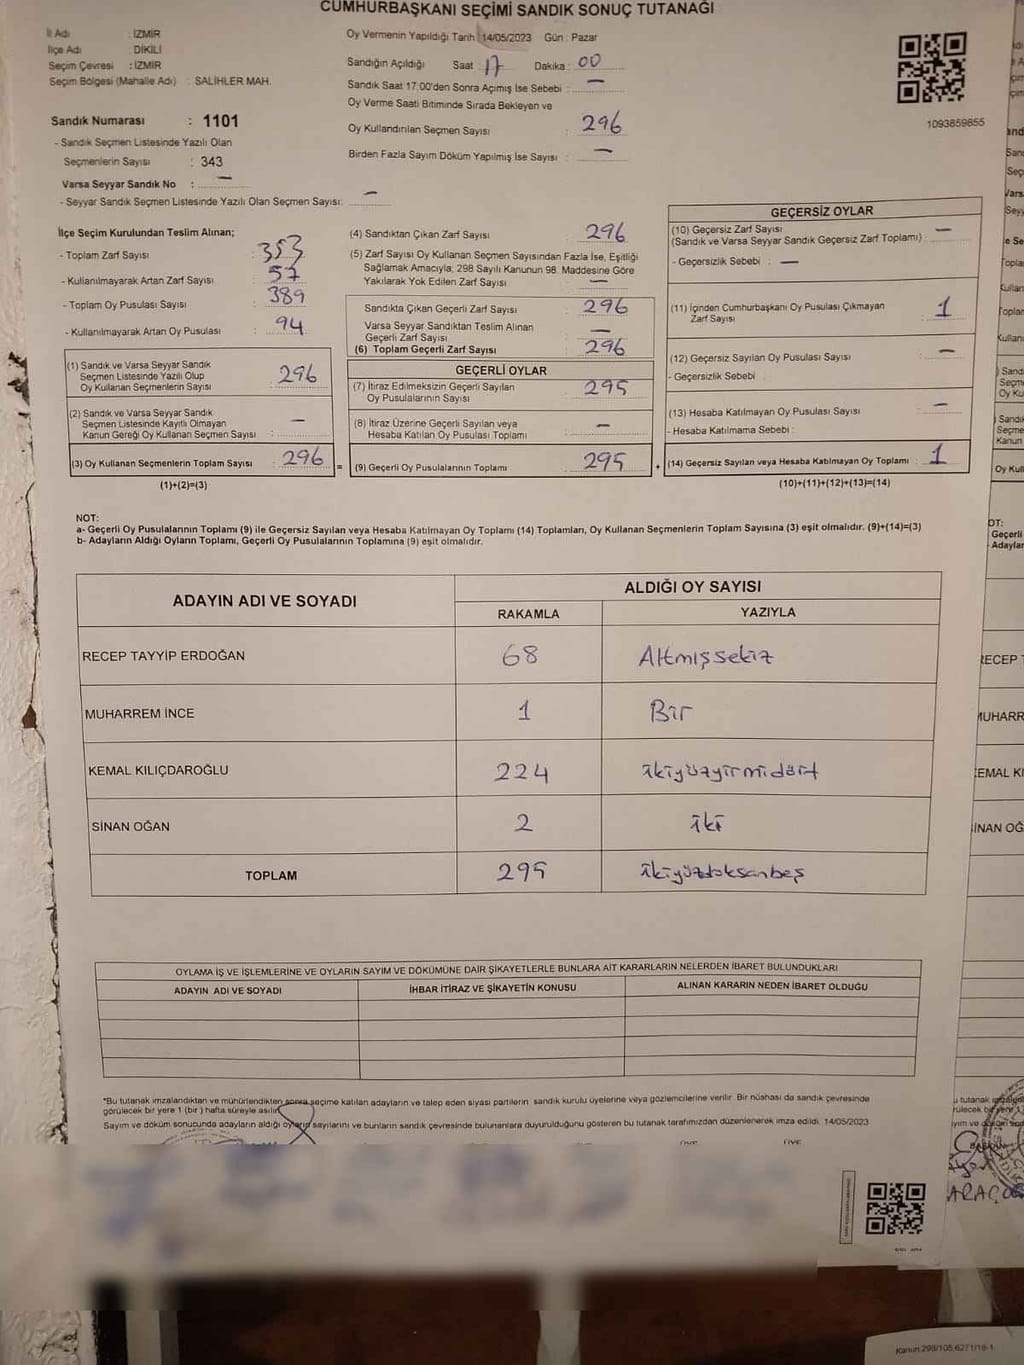 CUMHURBAŞKANI SEÇİMİ SANDIK SONUÇ TUTANAĞI
İl Adı : İZMİR
İlçe Adı : DİKİLİ
Seçim Çevresi : İZMİR
Seçim Bölgesi (Mahalle Adı) : SALİHLER MAH.
Sandık Numarası : 1101
- Sandık Seçmen Listesinde Yazılı Olan
Seçmenlerin Sayısı : 343
Varsa Seyyar Sandık No : —
- Seyyar Sandık Seçmen Listesinde Yazılı Olan Seçmen Sayısı: —
Oy Vermenin Yapıldığı Tarih : 14/05/2023 Gün : Pazar
Sandığın Açıldığı Saat : 17 Dakika : 00
Sandık Saat 17:00'den Sonra Açımış İse Sebebi : —
Oy Verme Saati Bitiminde Sırada Bekleyen ve
Oy Kullandırılan Seçmen Sayısı : 296
Birden Fazla Sayım Döküm Yapılmış İse Sayısı : —
1093859855
İlçe Seçim Kurulundan Teslim Alınan;
- Toplam Zarf Sayısı : 353
- Kullanılmayarak Artan Zarf Sayısı : 57
- Toplam Oy Pusulası Sayısı : 389
- Kullanılmayarak Artan Oy Pusulası : 94
(1) Sandık ve Varsa Seyyar Sandık
Seçmen Listesinde Yazılı Olup
Oy Kullanan Seçmenlerin Sayısı : 296
(2) Sandık ve Varsa Seyyar Sandık
Seçmen Listesinde Kayıtlı Olmayan
Kanun Gereği Oy Kullanan Seçmen Sayısı : —
(3) Oy Kullanan Seçmenlerin Toplam Sayısı : 296
(1)+(2)=(3)
(4) Sandıktan Çıkan Zarf Sayısı : 296
(5) Zarf Sayısı Oy Kullanan Seçmen Sayısından Fazla İse, Eşitliği
Sağlamak Amacıyla; 298 Sayılı Kanunun 98. Maddesine Göre
Yakılarak Yok Edilen Zarf Sayısı : —
Sandıkta Çıkan Geçerli Zarf Sayısı : 296
Varsa Seyyar Sandıktan Teslim Alınan
Geçerli Zarf Sayısı : —
(6) Toplam Geçerli Zarf Sayısı : 296
GEÇERLİ OYLAR
(7) İtiraz Edilmeksizin Geçerli Sayılan
Oy Pusulalarının Sayısı : 295
(8) İtiraz Üzerine Geçerli Sayılan veya
Hesaba Katılan Oy Pusulası Toplamı : —
= (9) Geçerli Oy Pusulalarının Toplamı : 295
GEÇERSİZ OYLAR
(10) Geçersiz Zarf Sayısı
(Sandık ve Varsa Seyyar Sandık Geçersiz Zarf Toplamı) : —
- Geçersizlik Sebebi : —
(11) İçinden Cumhurbaşkanı Oy Pusulası Çıkmayan
Zarf Sayısı : 1
(12) Geçersiz Sayılan Oy Pusulası Sayısı : —
- Geçersizlik Sebebi :
(13) Hesaba Katılmayan Oy Pusulası Sayısı : —
- Hesaba Katılmama Sebebi :
+ (14) Geçersiz Sayılan veya Hesaba Katılmayan Oy Toplamı : 1
(10)+(11)+(12)+(13)=(14)
NOT:
a- Geçerli Oy Pusulalarının Toplamı (9) ile Geçersiz Sayılan veya Hesaba Katılmayan Oy Toplamı (14) Toplamları, Oy Kullanan Seçmenlerin Toplam Sayısına (3) eşit olmalıdır. (9)+(14)=(3)
b- Adayların Aldığı Oyların Toplamı, Geçerli Oy Pusulalarının Toplamına (9) eşit olmalıdır.
ADAYIN ADI VE SOYADI ALDIĞI OY SAYISI
RAKAMLA YAZIYLA
RECEP TAYYİP ERDOĞAN 68 Altmışsekiz
MUHARREM İNCE 1 Bir
KEMAL KILIÇDAROĞLU 224 ikiyüzyirmidört
SİNAN OĞAN 2 iki
TOPLAM 295 ikiyüzdoksanbeş
OYLAMA İŞ VE İŞLEMLERİNE VE OYLARIN SAYIM VE DÖKÜMÜNE DAİR ŞİKAYETLERLE BUNLARA AİT KARARLARIN NELERDEN İBARET BULUNDUKLARI
ADAYIN ADI VE SOYADI İHBAR İTİRAZ VE ŞİKAYETİN KONUSU ALINAN KARARIN NEDEN İBARET OLDUĞU
*Bu tutanak imzalandıktan ve mühürlendikten sonra seçime katılan adayların ve talep eden siyasi partilerin sandık kurulu üyelerine veya gözlemcilerine verilir. Bir nüshası da sandık çevresinde
görülecek bir yere 1 (bir ) hafta süreyle asılır.
Sayım ve döküm sonucunda adayların aldığı oyların sayılarını ve bunların sandık çevresinde bulunanlara duyurulduğunu gösteren bu tutanak tarafımızdan düzenlenerek imza edildi. 14/05/2023
ÜYE ÜYE
Kanun:298/105,6271/18-1